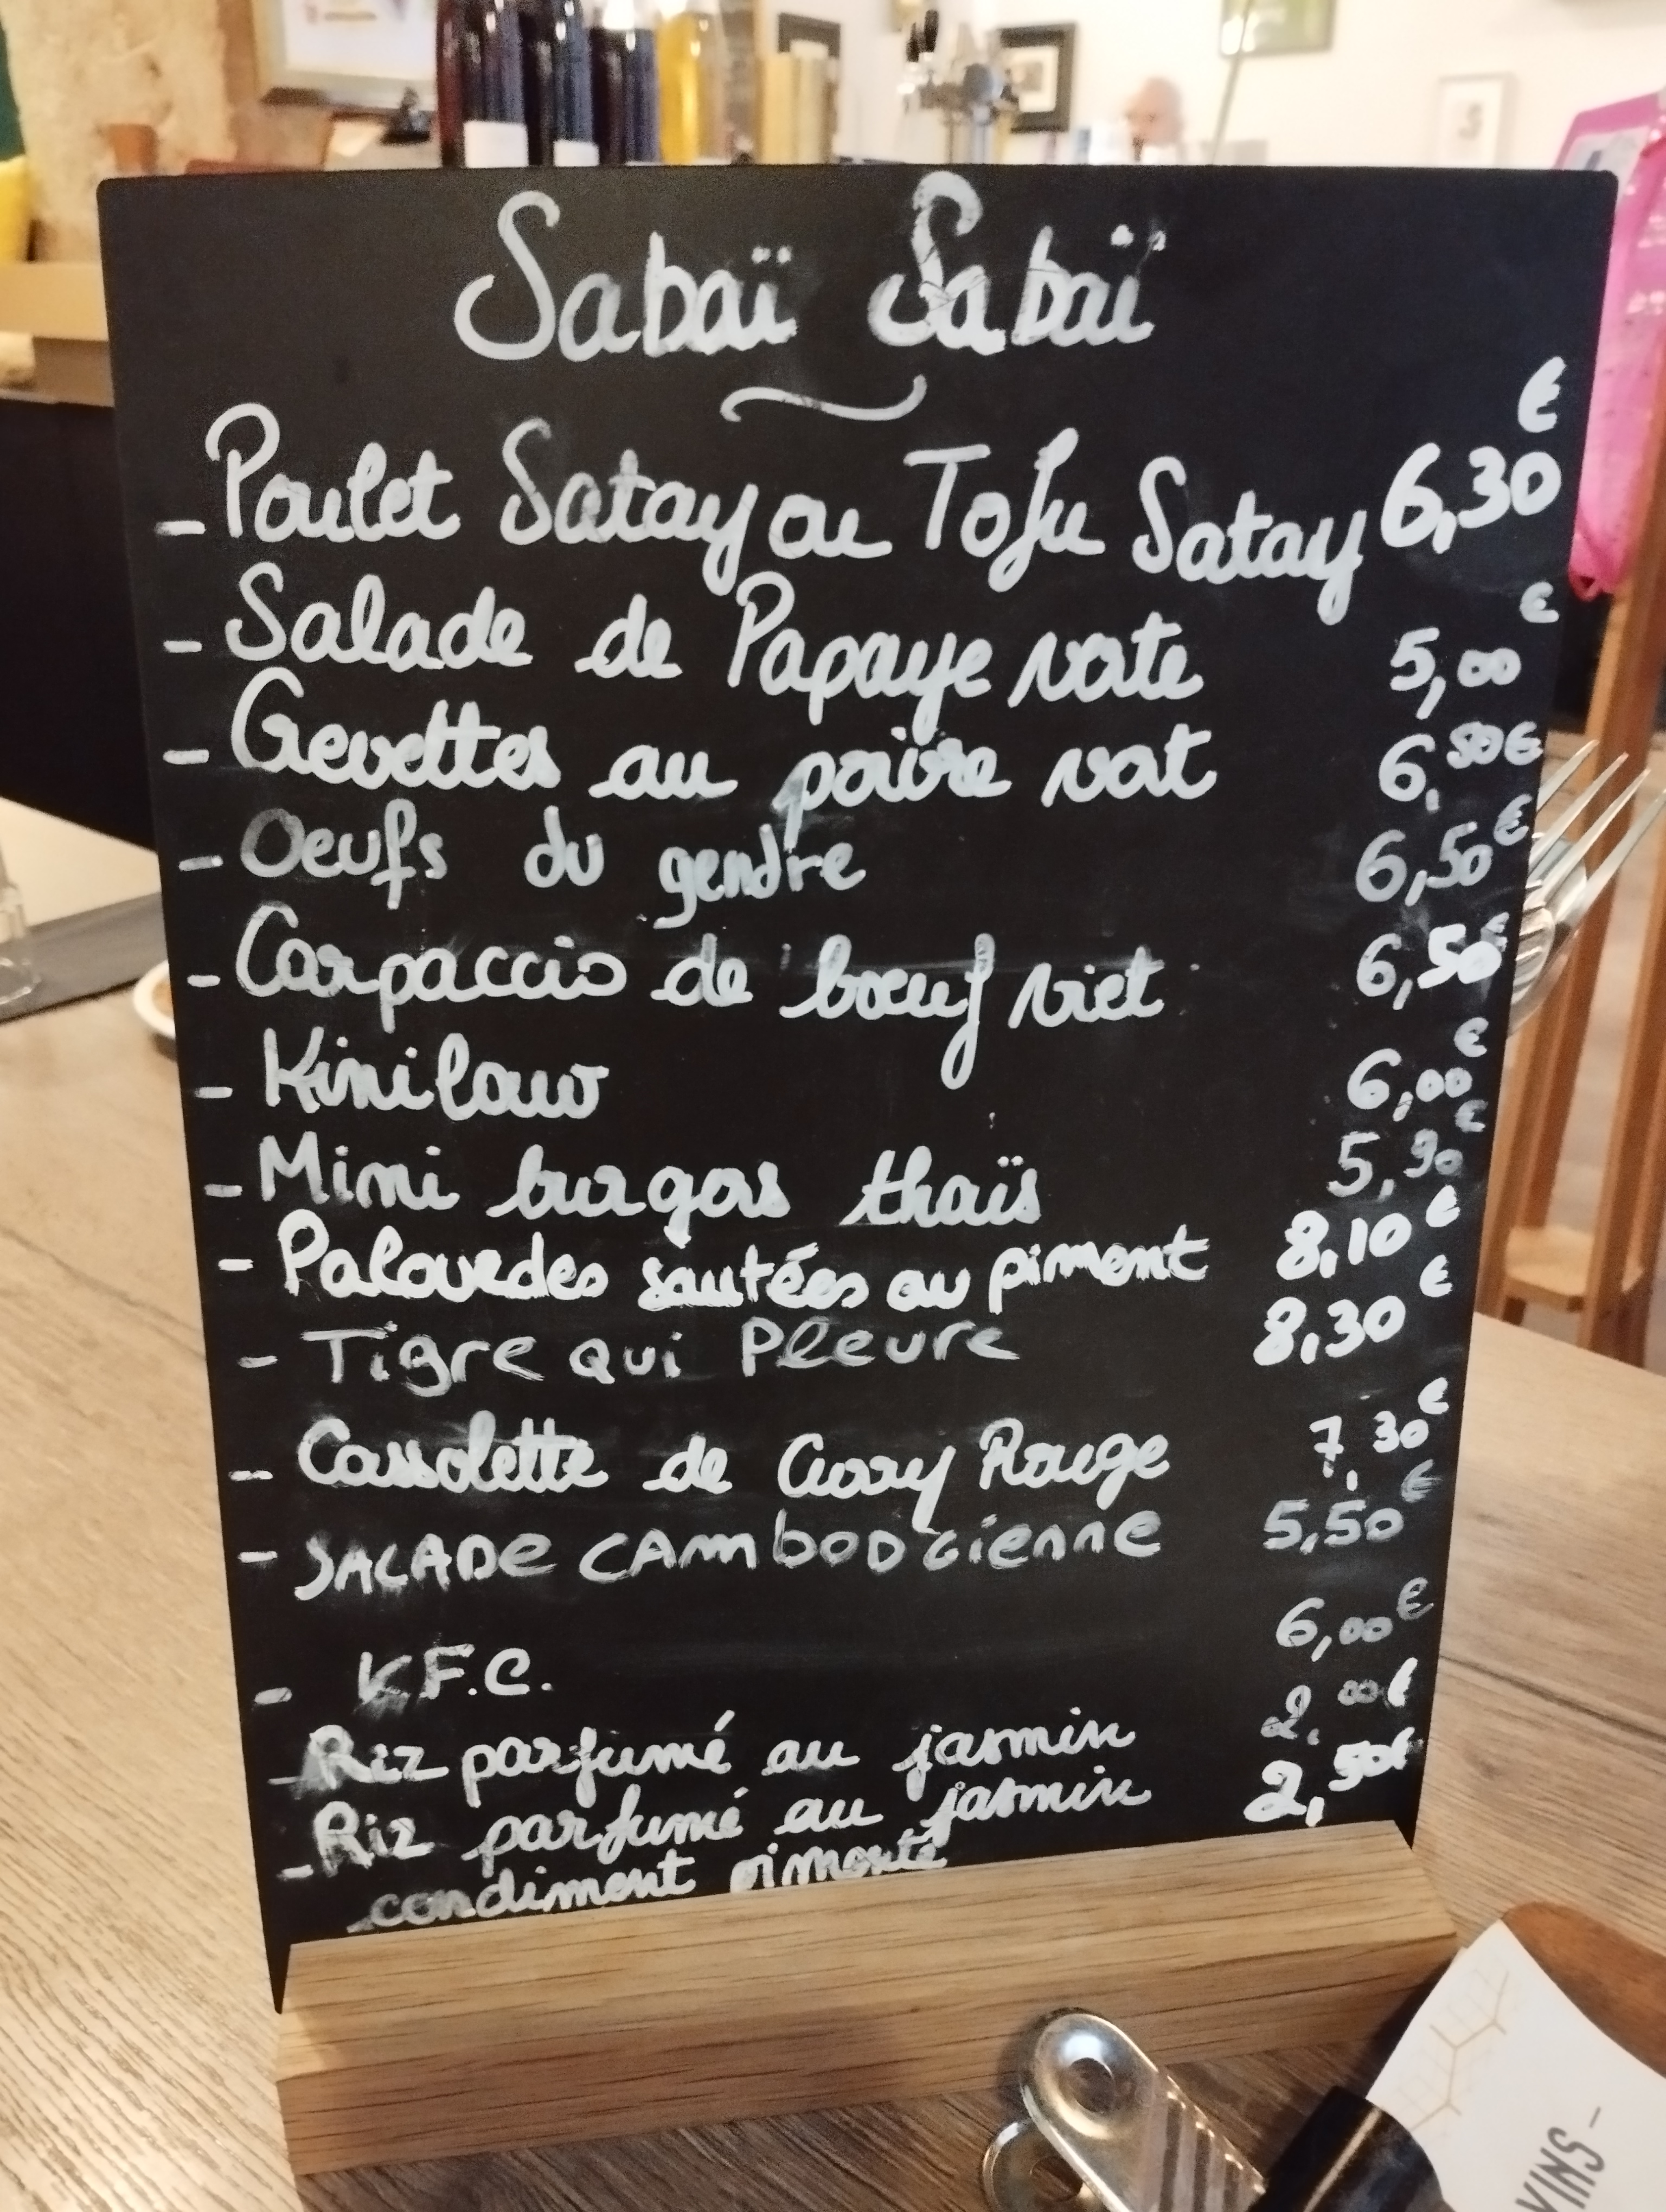 Sabaï Sabaï
- Poulet Satay ou Tofu Satay 6,30 €
- Salade de Papaye verte 5,00 €
- Crevettes au poivre vert 6,50€
- Oeufs du gendre 6,50€
- Carpaccio de boeuf viet 6,50€
- Kinilaw 6,00€
- Mini burgers thaïs 5,90€
- Palourdes sautées au piment 8,10€
- Tigre qui Pleure 8,30€
- Cassolette de Curry Rouge 7,30€
- SALADE CAMbODGienne 5,50€
- K.F.C. 6,00€
- Riz parfumé au jasmin 2,00€
- Riz parfumé au jasmin 2,50€
condiment pimenté
VINS -